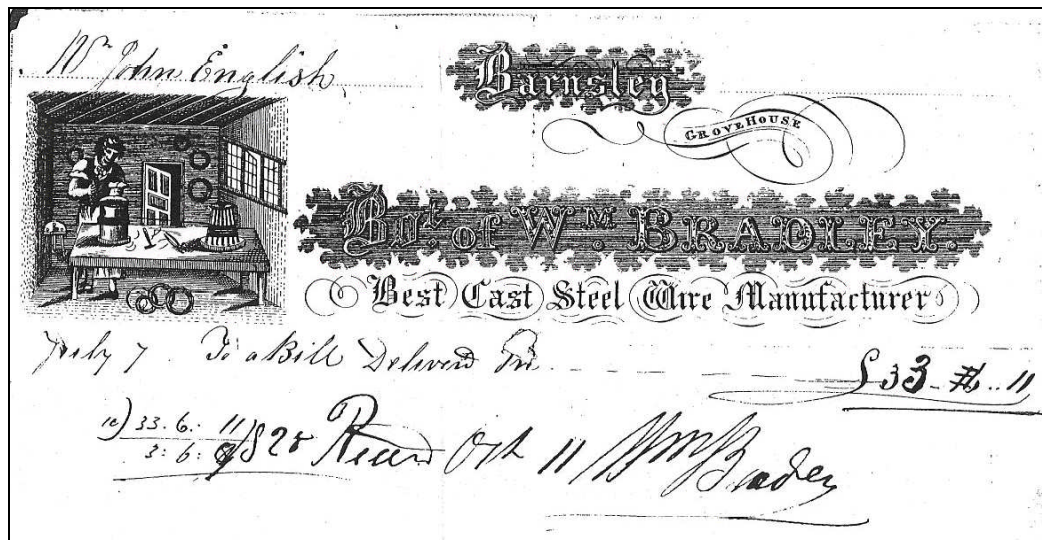 Mr John English
Barnsley
GROVE HOUSE
BDt. of WM. BRADLEY.
Best Cast Steel Wire Manufacturer
July 7 To a Bill Deliverd £33 - 6 .. 11
10) 33. 6. 11
3: 6: 8
1828 Oct 11 Wm Bradley